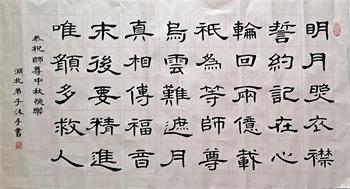 明月照衣襟
誓約記在心
輪回兩億載
祇為等師尊
烏雲難遮月
真相傳福音
末後要精進
唯願多救人
恭祝師尊中秋快樂
湖北弟子沐手書